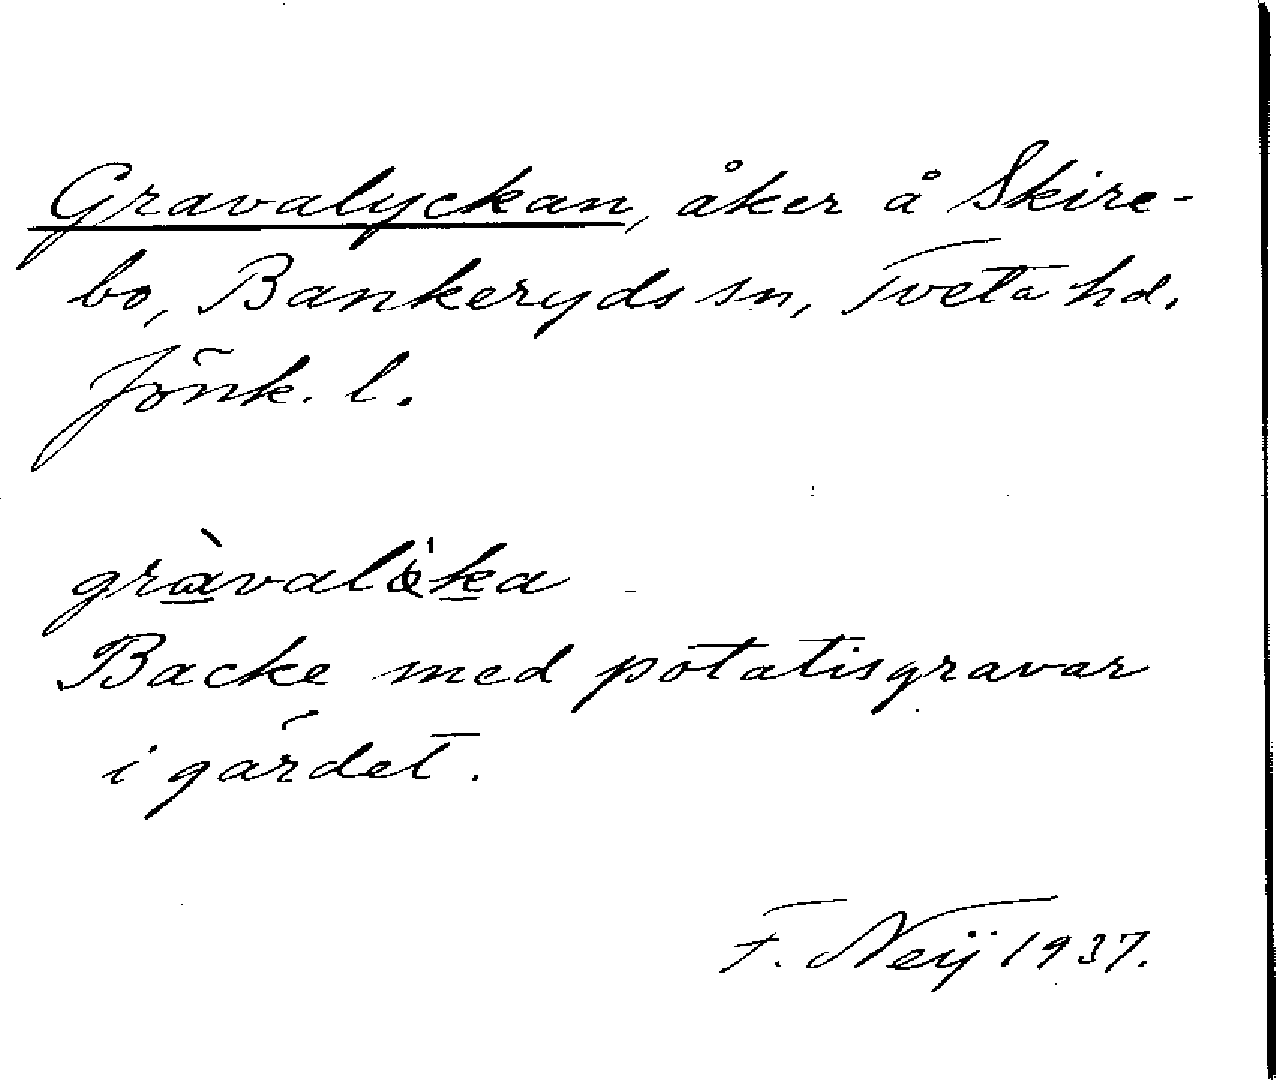 Gravalyckan, åker å Skire-
bo, Bankeryds sn, Tveta hd.
Jönk. l.
gràvalö̀ka
Backe med potatisgravar
i gärdet.
F. Neij 1937.